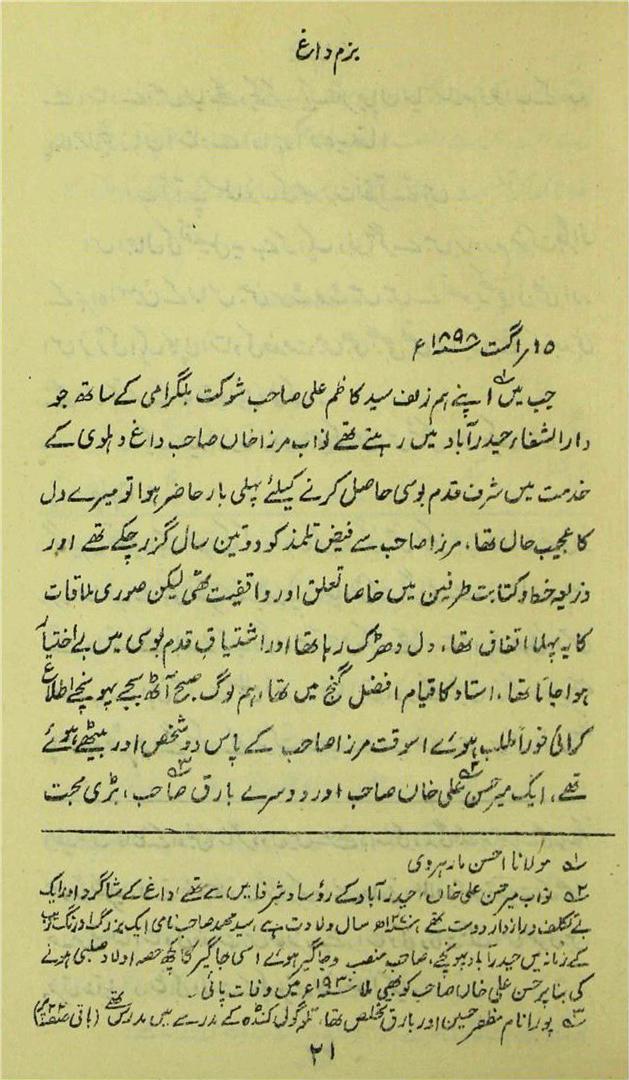 بزم داغ
۱۵ر اگست ۱۸۹۸ء
جب میں۱ اپنے ہم زلف سید کاظم علی صاحب شوکت بلگرامی کے ساتھ جو
دارالشفاء حیدرآباد میں رہتے تھے نواب مرزا خاں صاحب داغ دہلوی کے
خدمت میں شرف قدم بوسی حاصل کرنے کیلئے پہلی بار حاضر ہوا تو میرے دل
کا عجیب حال تھا، مرزا صاحب سے فیض تلمذ کو دو تین سال گزر چکے تھے اور
ذریعہ خط و کتابت طرفین میں خاصا تعلق اور واقفیت تھی لیکن صوری ملاقات
کا یہ پہلا اتفاق تھا، دل دھڑک رہا تھا اور اشتیاق قدم بوسی میں بے اختیار
ہوا جاتا تھا، استاد کا قیام افضل گنج میں تھا، ہم لوگ صبح آٹھ بجے پہونچے اطلاع
کرائی فوراً طلب ہوئے اسوقت مرزا صاحب کے پاس دو شخص اور بیٹھے ہوئے
تھے، ایک میر حسن علی خاں۲ صاحب اور دوسرے بارق صاحب۳، بڑی محبت
۱ مولانا احسن مارہروی
۲ نواب میر حسن علی خاں، حیدرآباد کے رؤساء و شرفا میں سے تھے، داغ کے شاگرد اور ایک
بے تکلف و رازدار دوست تھے سال ولادت ہے، سید محمد صاحب نامی ایک بزرگ اورنگ زیب
کے زمانہ میں حیدرآباد پہونچے، صاحب منصب و جاگیر ہوئے اسی جاگیر کا کچھ حصہ اولاد صلبی ہونے
کی بنا پر حسن علی خاں صاحب کو بھی ملا میں وفات پائی۔
۳ پورا نام مظفر حسین اور بارق تخلص تھا، قلعہ گولکنڈہ کے مدرسے میں مدرس تھے (باقی صفحہ ۲۲ پر)
۲۱